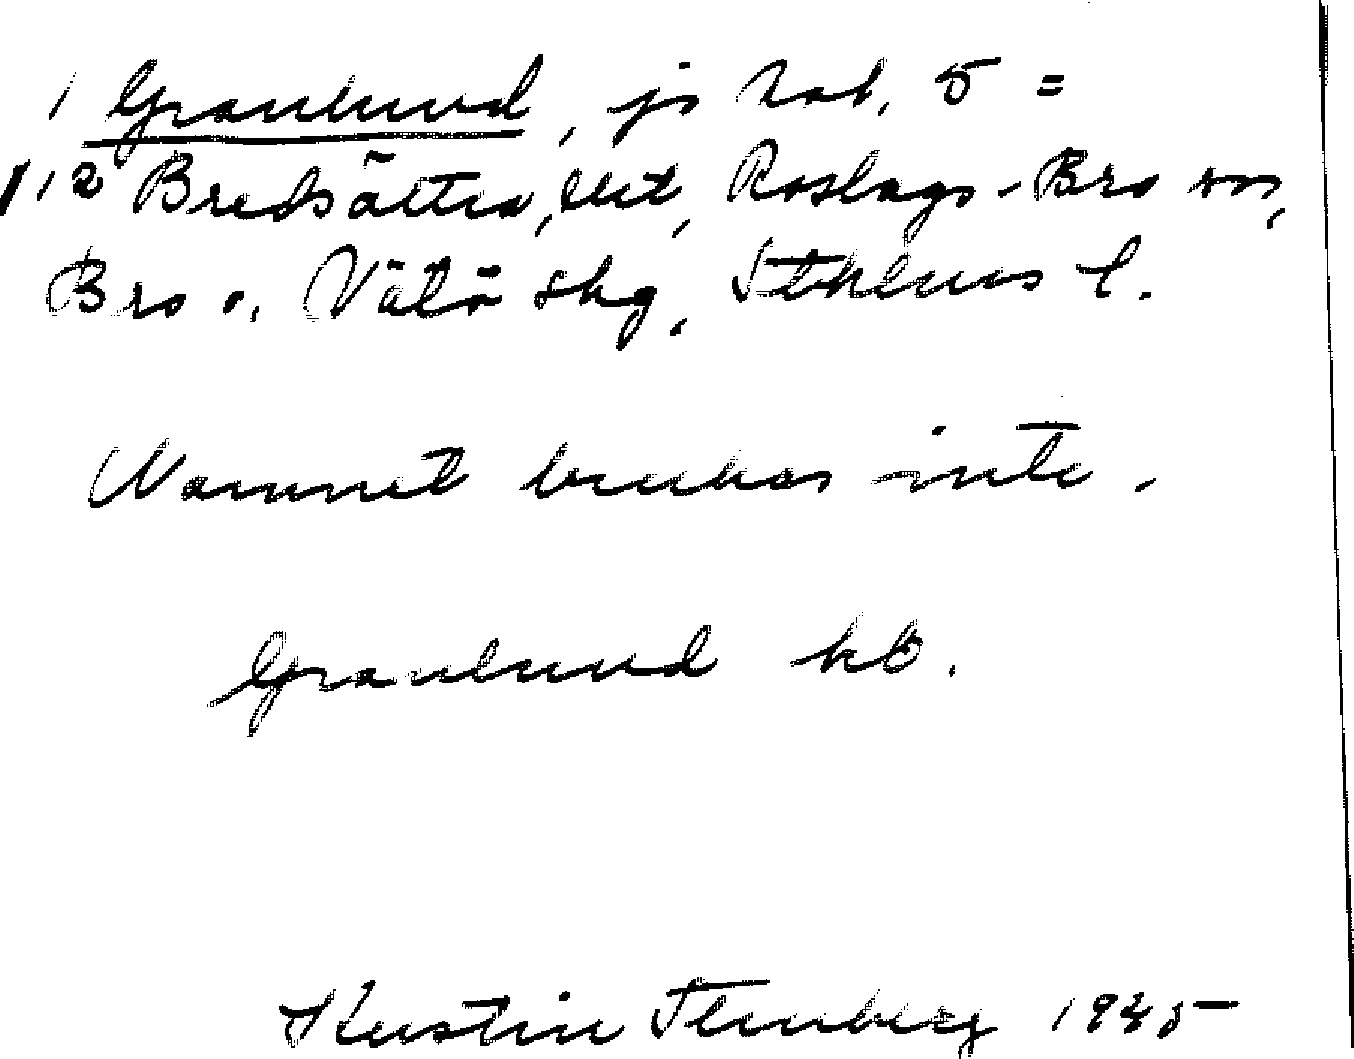 1 Granlund, js hat. 5 =
1,2 Bredsättra, Roslags-Bro sn,
Bro o. Vätö skg, Sthlms l.
Namnet brukas inte.
Granlund kb.
Kerstin Stenberg 1945